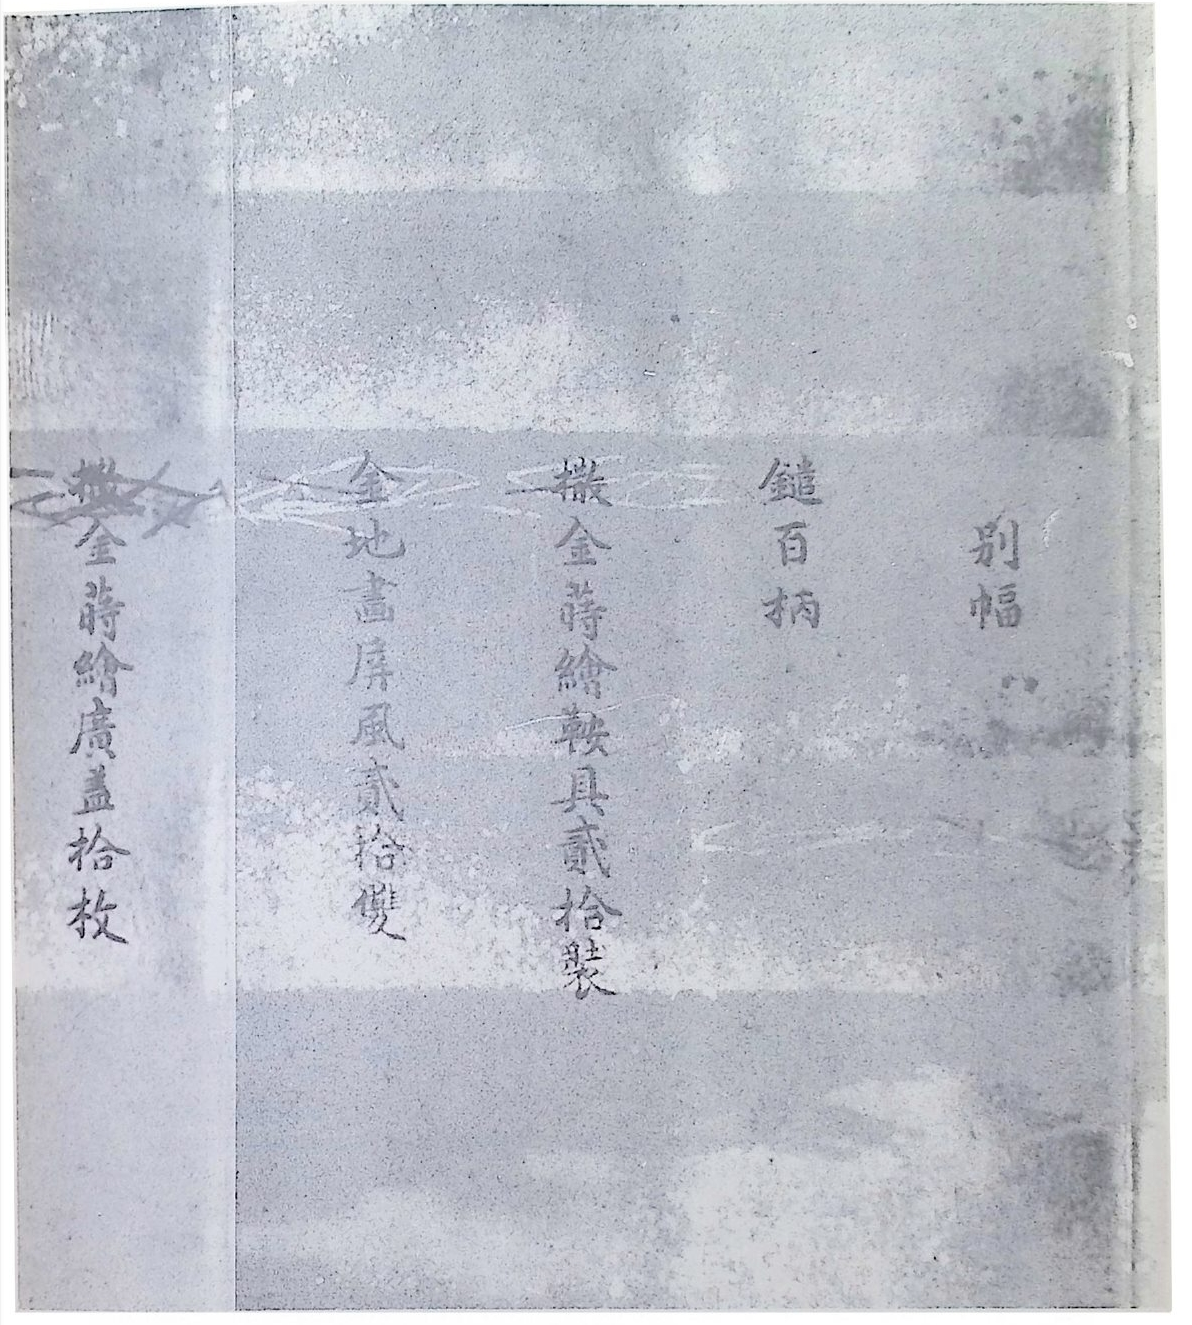 別幅
鑓百柄
撒金蒔繪鞍具貳拾裝
金地畫屏風貳拾雙
撒金蒔繪廣盖拾枚